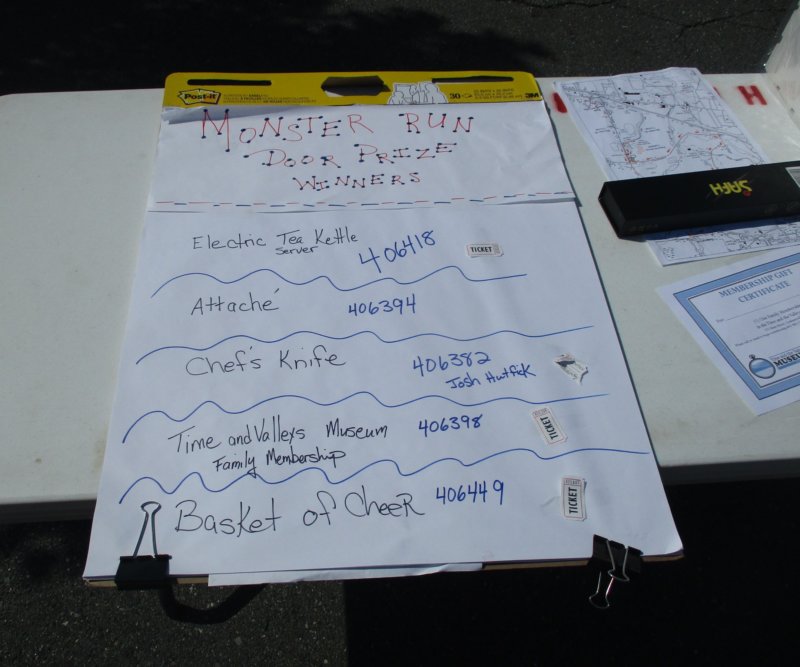 Post-it
30
3M
MONSTER RUN
DOOR PRIZE
WINNERS
Electric Tea Kettle
Server
406418
TICKET
Attaché
406394
Chef's Knife
406382
Time and Valleys Museum
Family Membership
406398
TICKET
Basket of Cheer
406449
TICKET
H
MEMBERSHIP GIFT
CERTIFICATE
MUSEU